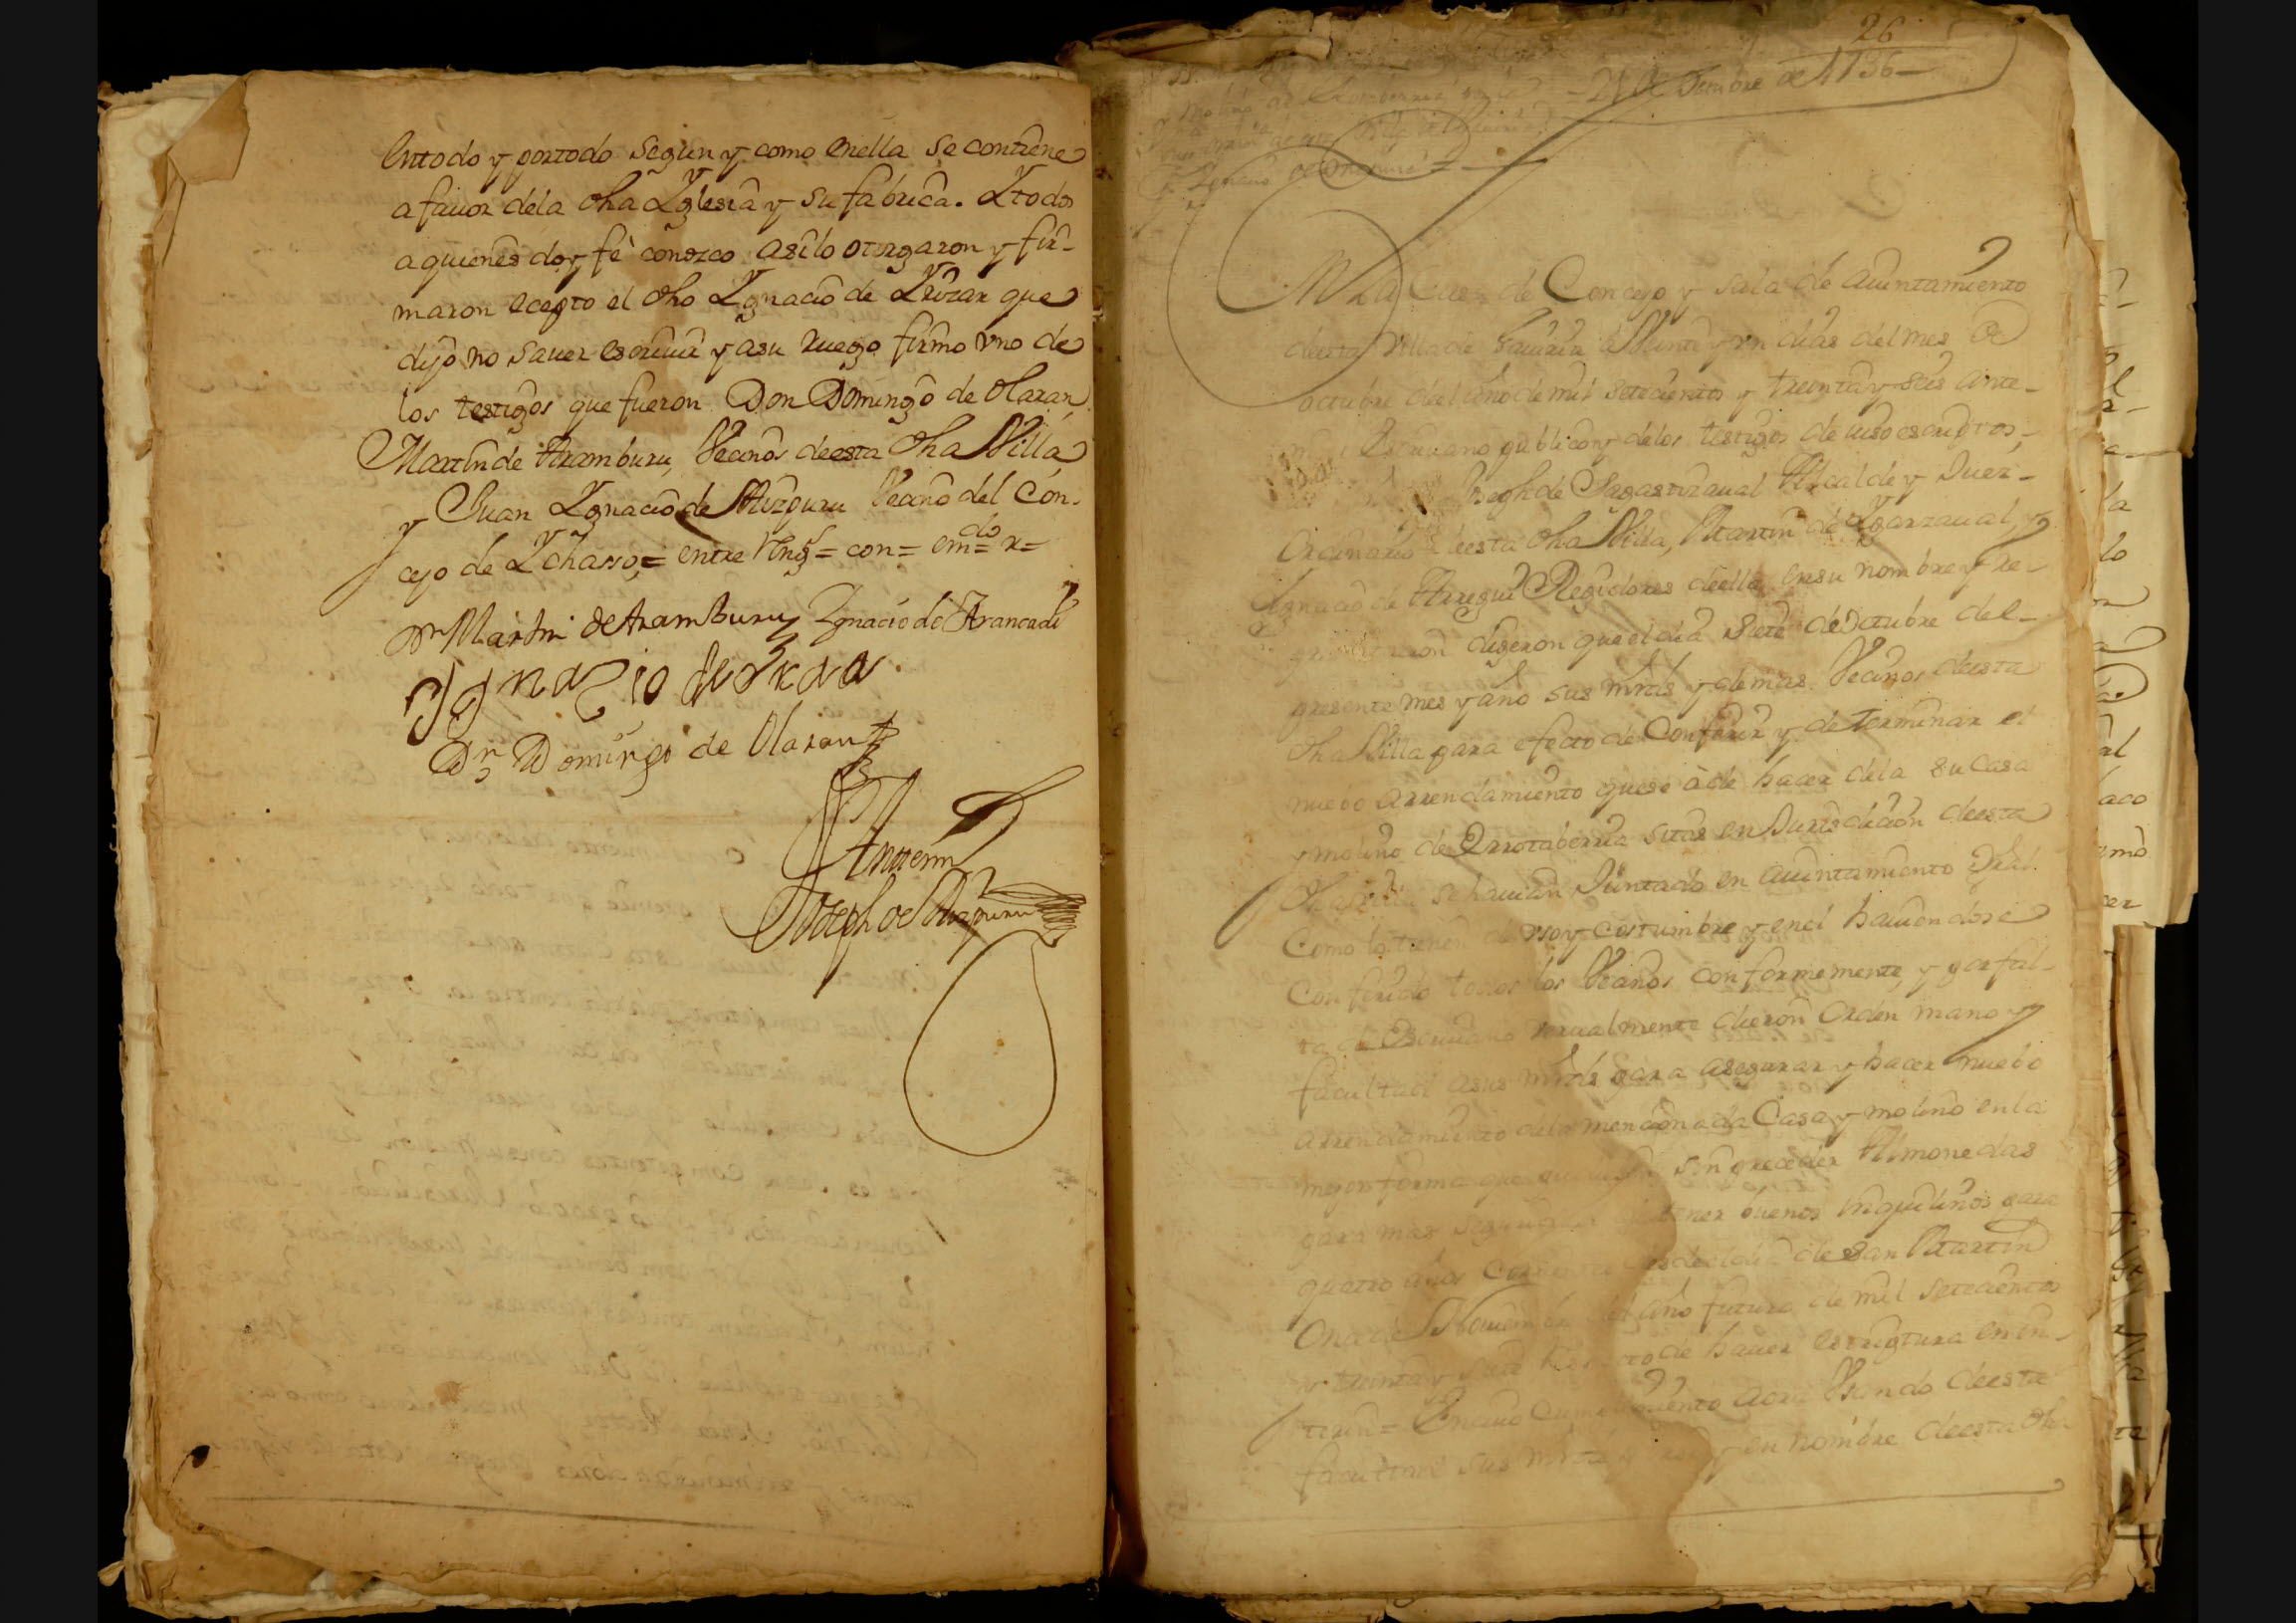 Entodo y portodo segun y como enella se contiene
a fauor dela dha Yglesia y su fabrica. Y todos
aquienes doy fè conozco asilo otorgaron y fir-
maron ecepto el dho Ygnacio de Yrizar que
dijo no sauer escriuir y asu ruego firmo vno de
los testigos que fueron Don Domingo de Olaran
Martin de Aramburu, Vecinos deesta dha Villa
y Juan Ygnacio de Aizpuru Vecino del Con-
cejo de Ydiazo,= entre Rengs = con= emdo= r=
Dn Martin de Aramburu Ygnacio de Arancadi
Ygnazio de
Dn Domingo de Olaran
Antemi
Joseph de Aizpuru
26
= 21 de Octubre de 1736 —
y molino de Errotaberria
En la Casa de Concejo y sala de auintamiento
deesta Villa de Gauiria à Veinte y vn dias del mes de
octubre del año de mil setecientos y treinta y seis ante-
mi Escriuano publico y delos testigos de iuso escriptos-
Joseph de Sagastizaual Alcalde y Juez-
Ordinario deesta dha Villa, Martin de Ygarzaual, y
Ygnacio de Arregui Regidores deella en su nombre y re-
presentacion dijeron que el dia siete de Octubre del-
presente mes y año sus mrds y demas Vecinos deesta
dha Villa para efecto de Conferir y determinar el
nuebo arrendamiento quese à de hacer dela su Casa
y molino de Errotaberria sitas en Jurisdicion deesta
dha Villa se hauian Juntado en auintamiento Gral.
Como lo tienen de vso y costumbre y enel hauiendose
Conferido todos los Vecinos conformemente, y por fal-
ta de Escriuano verualmente dieron orden mano y
facultad asus mrds para asegurar y hacer nuebo
arrendamiento dela mencionada Casa y molino en la
mejor forma que pudiesen sin preceder Almonedas
para mas seguridad de tener buenos Inquilinos para
quatro años Corrientes desde el dia de san Martin
Once de Nouiembre del año futuro de mil setecientos
y treinta y siete de hauer escriptura en su-
razon= En cuio cumplimiento aora Vsando deesta
facultad sus mrds y en nombre deesta dha